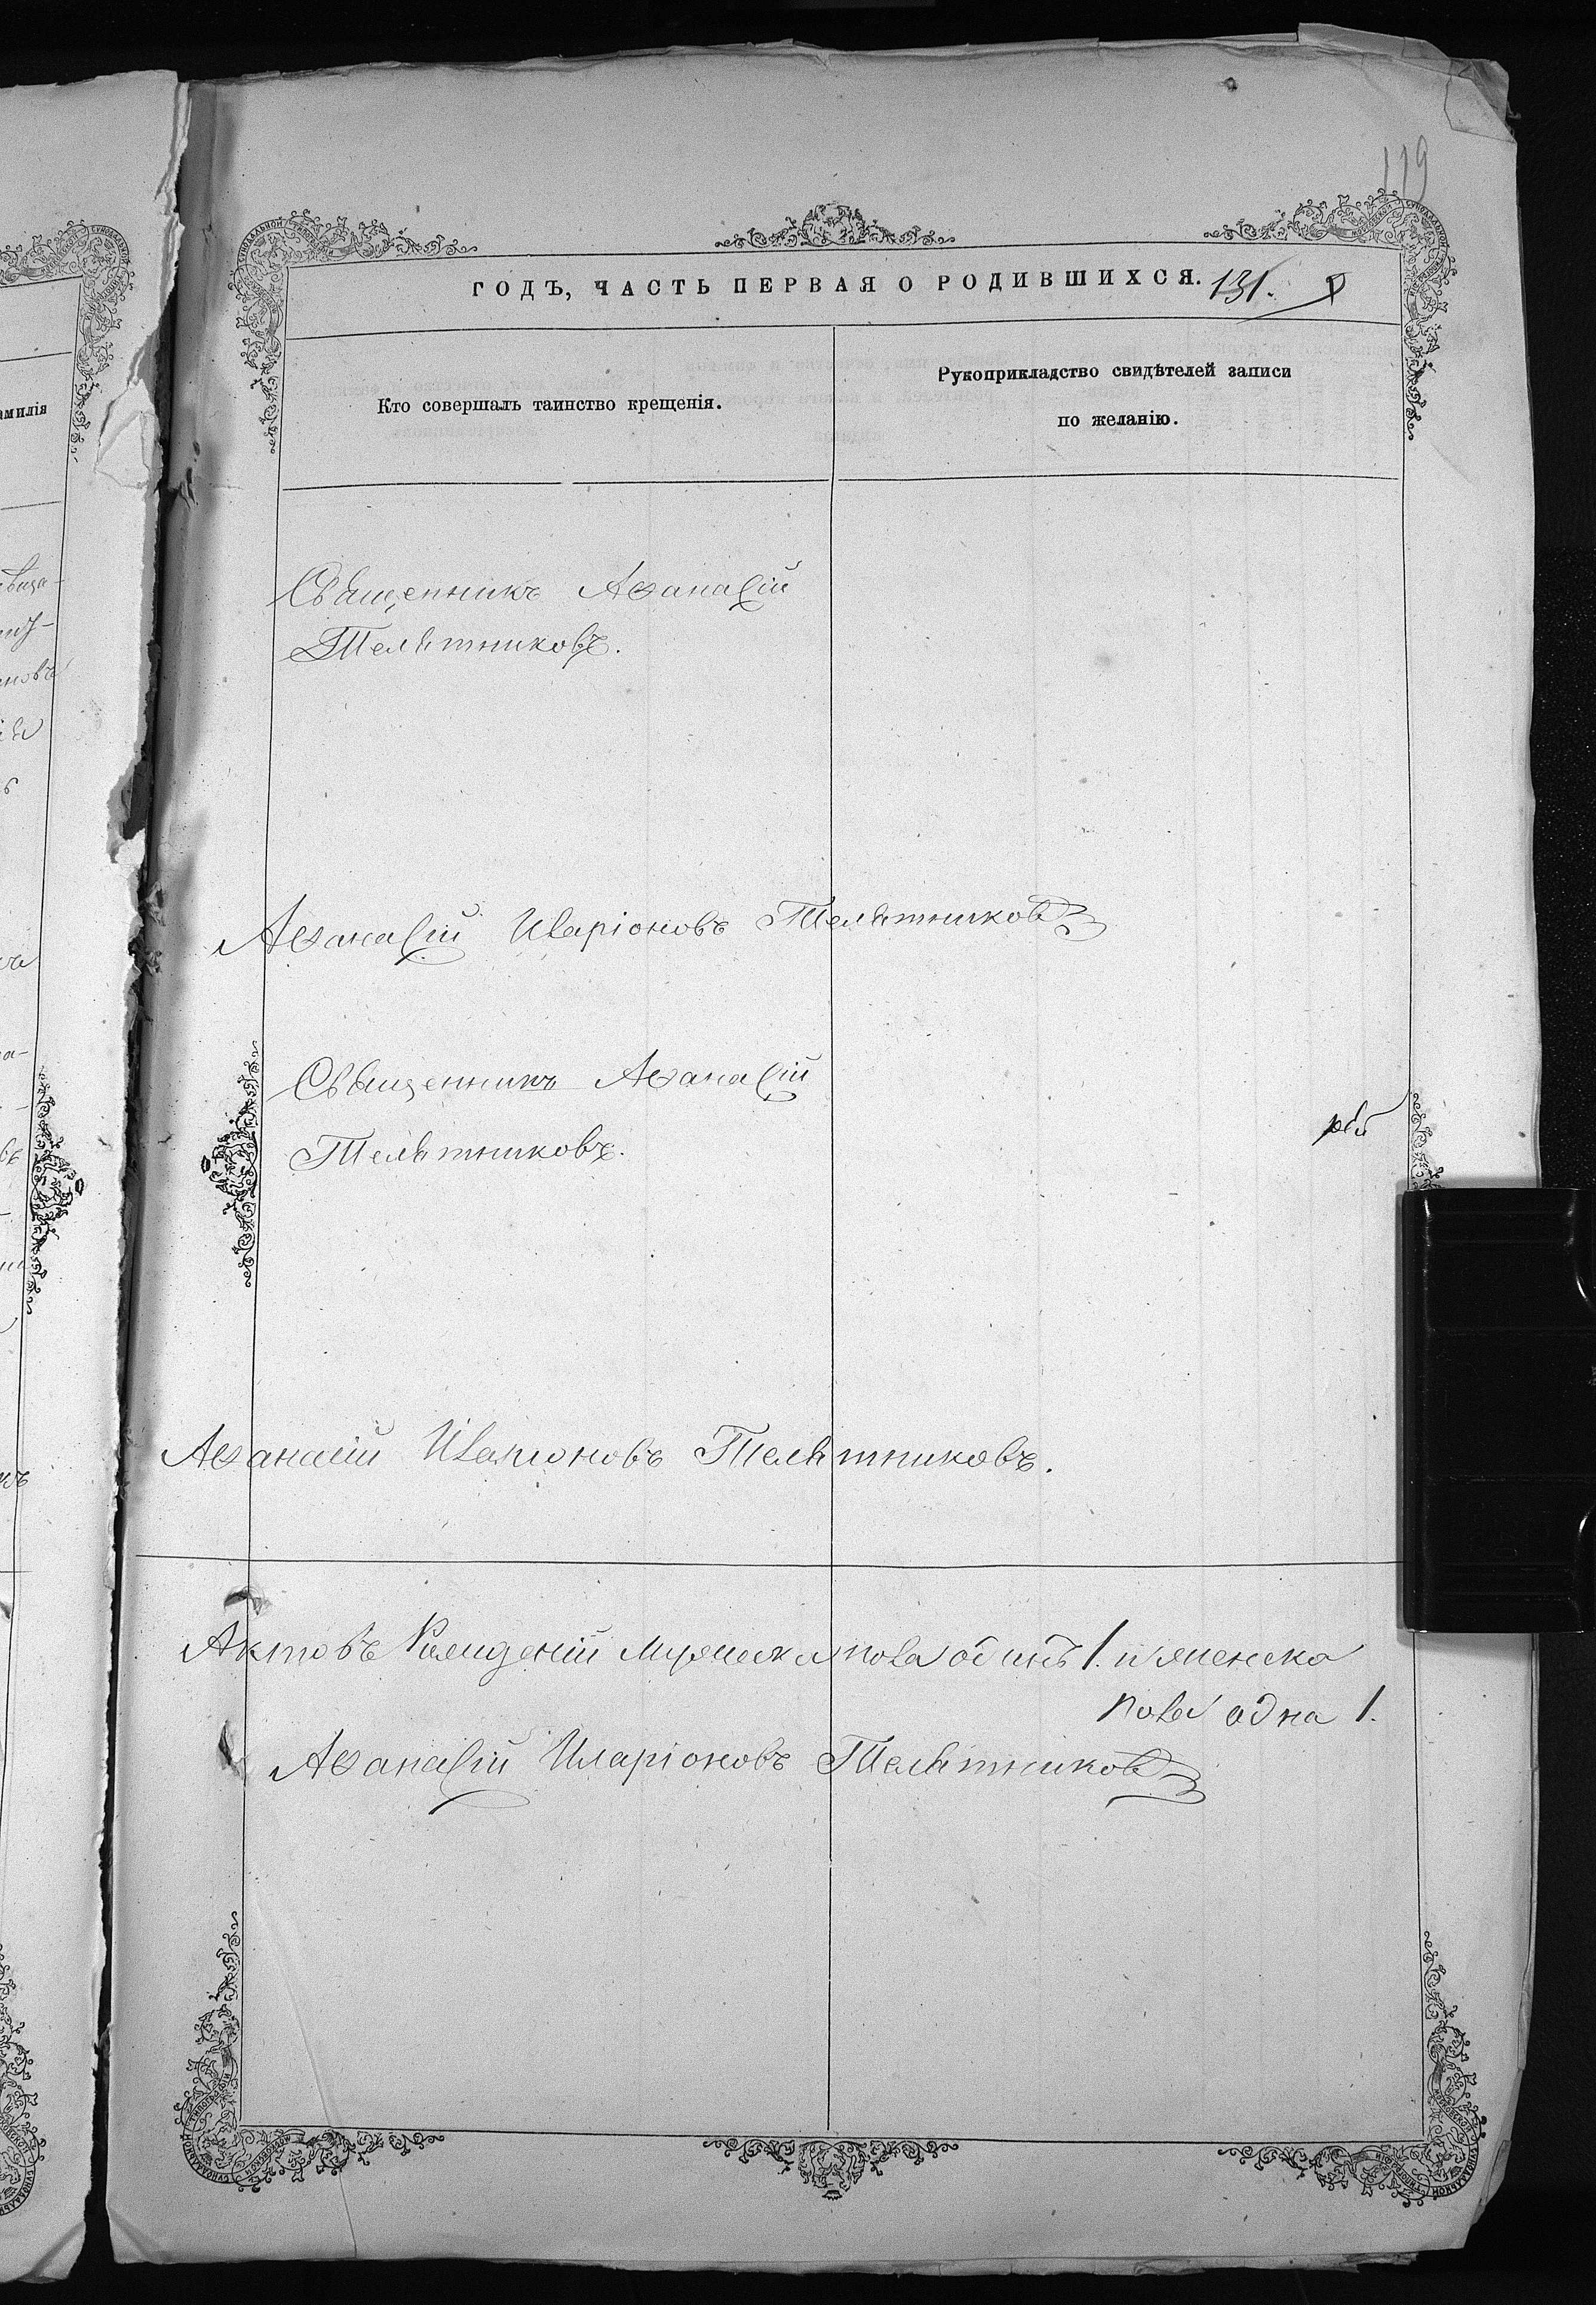 119
ГОДЪ, ЧАСТЬ ПЕРВАЯ О РОДИВШИХСЯ. 131.
Кто совершалъ таинство крещенія.
Рукоприкладство свидѣтелей записи
по желанію.
амилія
Священникъ Аѳанасій
Телятниковъ.
Аѳанасій Иларіоновъ Телятниковъ
Священникъ Аѳанасій
Телятниковъ.
Аѳанасій Иларионовъ Телятниковъ.
Актовъ Рожденій мужеска пола одинъ 1. и женска
пола одна 1.
Аѳанасій Иларіоновъ Телятниковъ